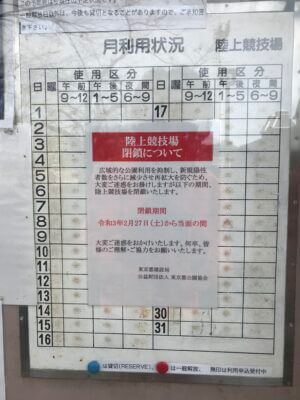 一般開放日以外は、今後も貸切となることがありますので、ご承知置
き下さい。
月利用状況 陸上競技場
日 曜 使用区分 日 曜 使用区分
午前 午後 夜間 午前 午後 夜間
9〜12 1〜5 6〜9 9〜12 1〜5 6〜9
1 17
2
3
4
5
6
7
8
9
10
11
12
13
14 30
15 31
16
陸上競技場
閉鎖について
広域的な公園利用を抑制し、新規陽性
者数をさらに減少させ再拡大を防ぐため、
大変ご迷惑をお掛けしますが以下の期間、
陸上競技場を閉鎖いたします。
閉鎖期間
令和3年2月27日(土)から当面の間
大変ご迷惑をおかけいたします。何卒、皆
様のご理解・ご協力をお願いいたします。
東京都建設局
公益財団法人 東京都公園協会
は貸切(RESERVE)、 は一般解放、 無印は利用申込受付中